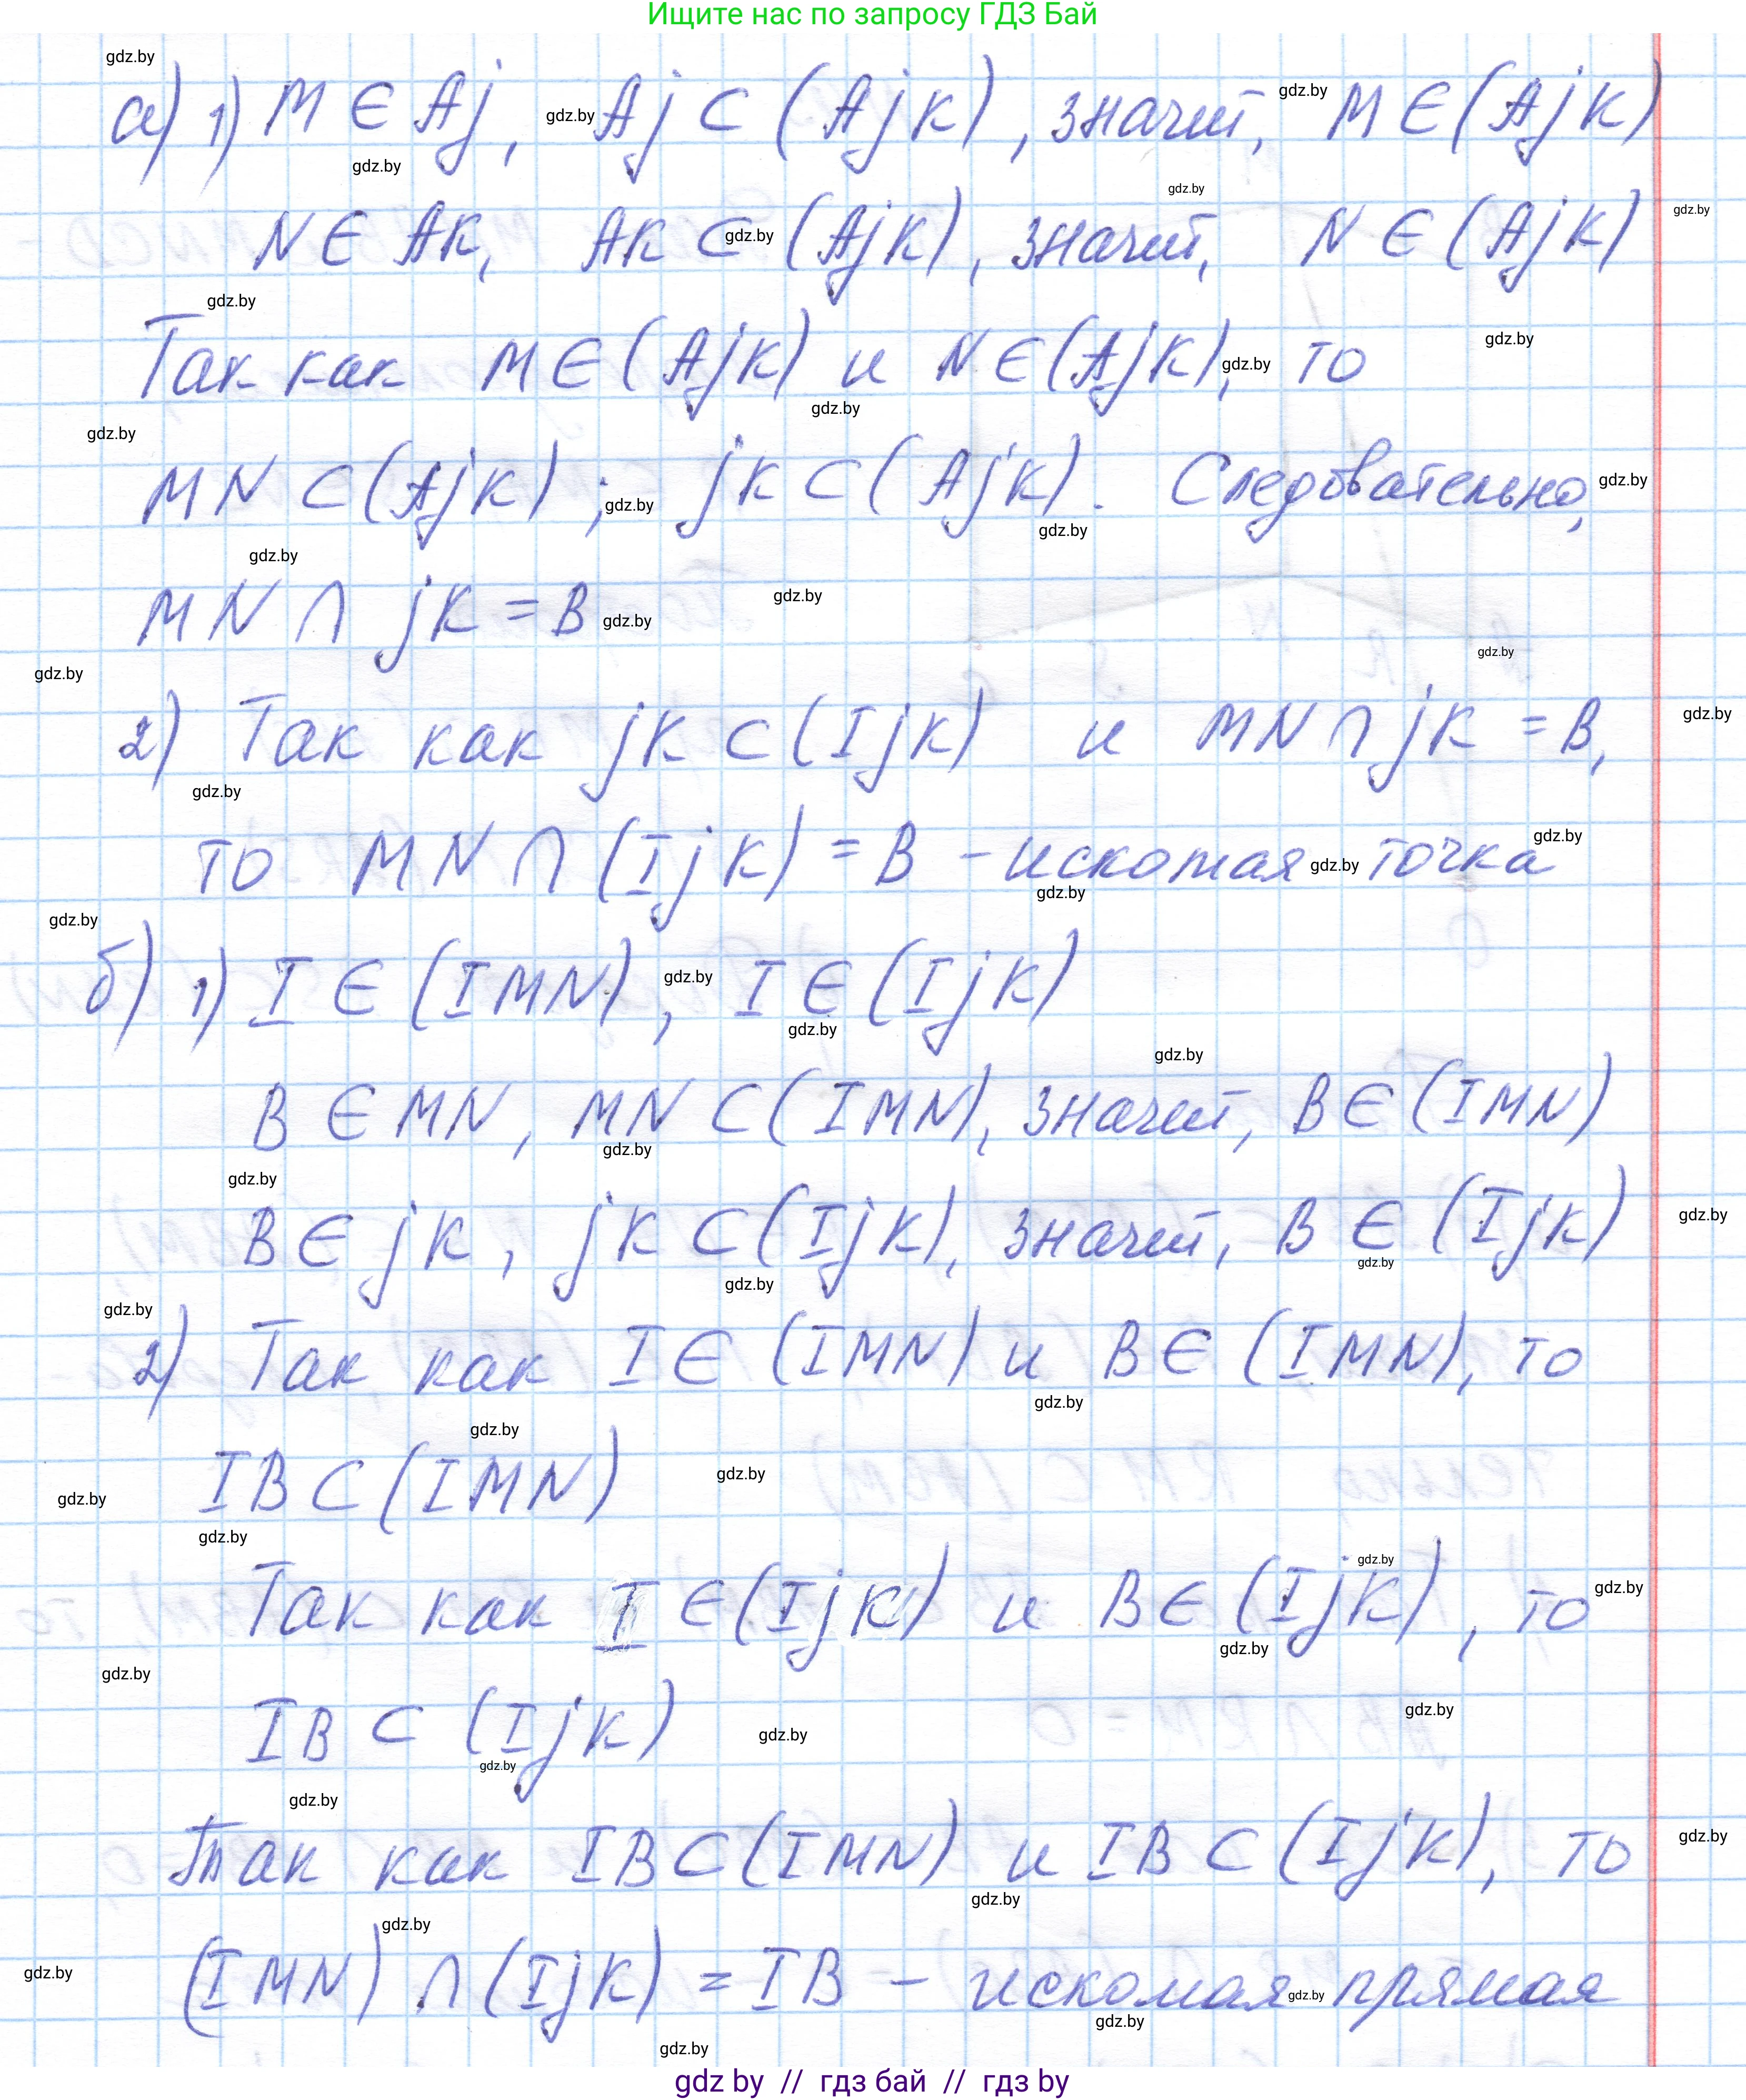 Ищите нас по запросу ГДЗ Бай
а) 1) M ∈ Aj, Aj ⊂ (AjK), значит, M ∈ (AjK)
N ∈ AK, AK ⊂ (AjK), значит, N ∈ (AjK)
Так как M ∈ (AjK) и N ∈ (AjK), то
MN ⊂ (AjK); jK ⊂ (AjK). Следовательно,
MN ∩ jK = B
2) Так как jK ⊂ (IjK) и MN ∩ jK = B,
то MN ∩ (IjK) = B – искомая точка
б) 1) I ∈ (IMN), I ∈ (IjK)
B ∈ MN, MN ⊂ (IMN), значит, B ∈ (IMN)
B ∈ jK, jK ⊂ (IjK), значит, B ∈ (IjK)
2) Так как I ∈ (IMN) и B ∈ (IMN), то
IB ⊂ (IMN)
Так как I ∈ (IjK) и B ∈ (IjK), то
IB ⊂ (IjK)
Так как IB ⊂ (IMN) и IB ⊂ (IjK), то
(IMN) ∩ (IjK) = IB – искомая прямая
gdz by // гдз бай // гдз by